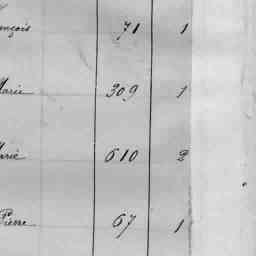 ançois 71 1
Marie 309 1
Marie 610 2
Pierre 67 1